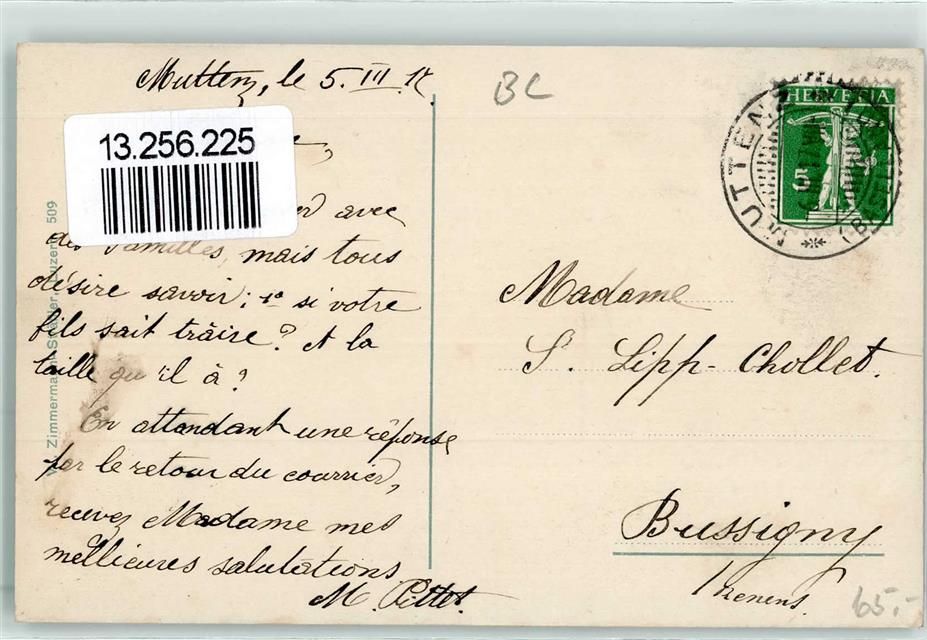 Muttenz, le 5. III. 17
BL
13.256.225
avec
des familles, mais tous
désire savoir: 1º si votre
fils sait trâire? et la
taille qu'il à?
En attendant une réponse
par le retour du courrier,
recevez Madame mes
meilleures salutations
M. Pittet.
Zimmermann
509
HELVETIA
5
MUTTENZ
Madame
S. Lipp-Chollet.
Bussigny
s/Renens.
65.-